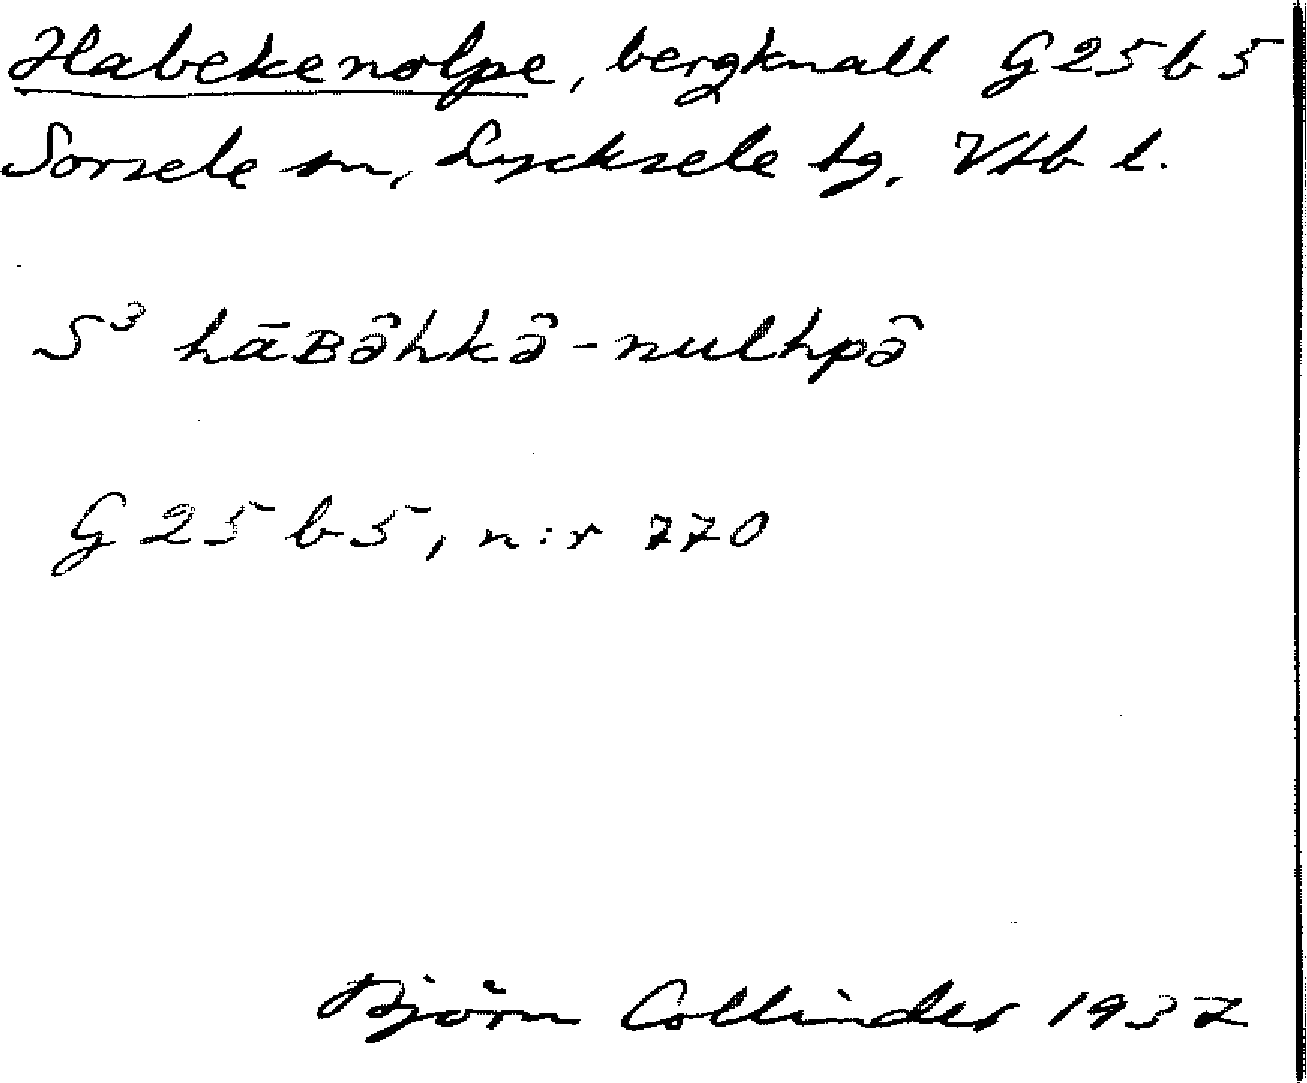 Habekenolpe, bergknall G 25 b 5
Sorsele sn, Lycksele tg. Vtb l.
S³ hāʙə̂hkə̂-nulhpə̂
G 25 b 5, n:r 770
Björn Collinder 1937